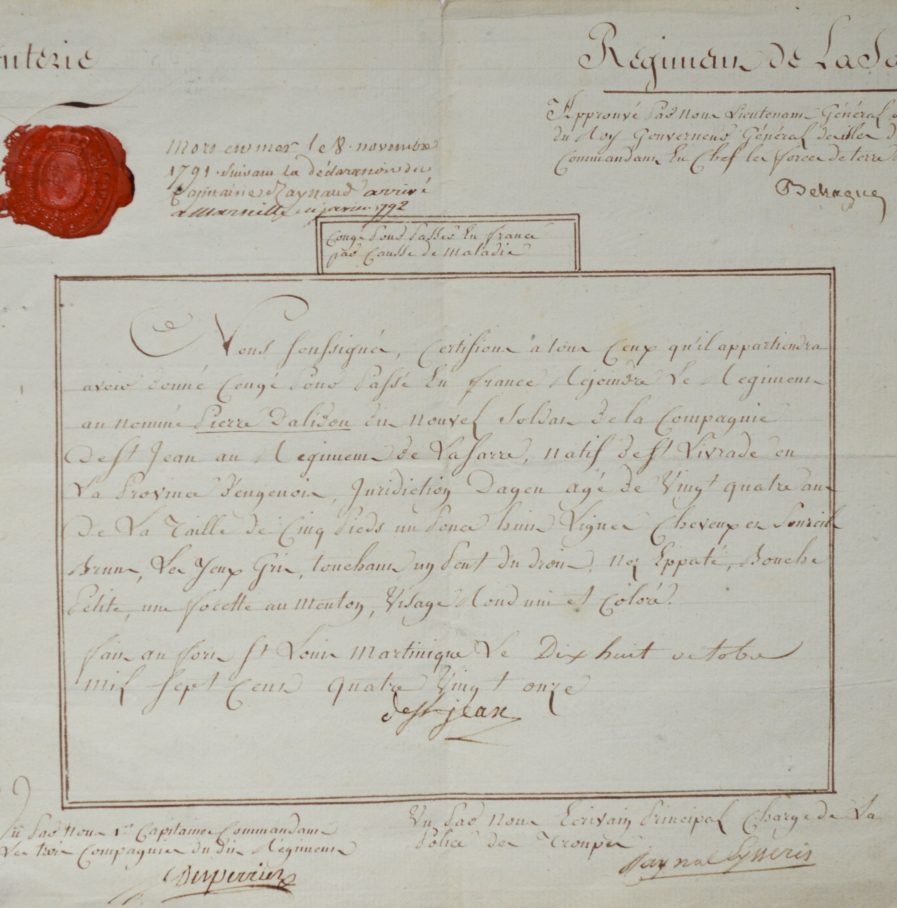 nterie
Regiment de La Sa
Approuvé Par Nous Lieutenant Général
du Roy Gouverneur Général des Iles d
Commandant En Chef les forces de terre
Behague
Mort en mer le 8. novembre
1791 suivant la déclaration du
Capitaine Raynaud arrivé
a Marseille en janvier 1792
Congé Pour Passer En france
par Causse de Maladie
Nous soussigné, Certifions a tous Ceux qu'il appartiendra
avoir donné Congé Pour Passé En france Rejoindre Le Regiment
au nommé Pierre Dalidou du Nouvel Soldat de la Compagnie
de St Jean au Regiment de La Sarre, natif de St Livrade en
La Province d'engenois, Juridiction Dagen agé de Vingt quatre ans
de La Taille de Cinq Pieds un Pouce huit Lignes Cheveux et Sourcils
Bruns, Les Yeux Gris, touchant un Peut du droit, Nez Eppaté, Bouche
Petite, une focette au menton, Visage Rond uni et Coloré.
fait au fort St Louis Martinique Le Dix huit octobre
mil Sept Cent quatre Vingt onze
de St jean
Vu Par Nous 1er Capitaine Commandant
Les trois Compagnies du dit Regiment
Desperriers
Vu Par Nous Ecrivain Principal Chargé de La
Police des Trouppes
Raynal